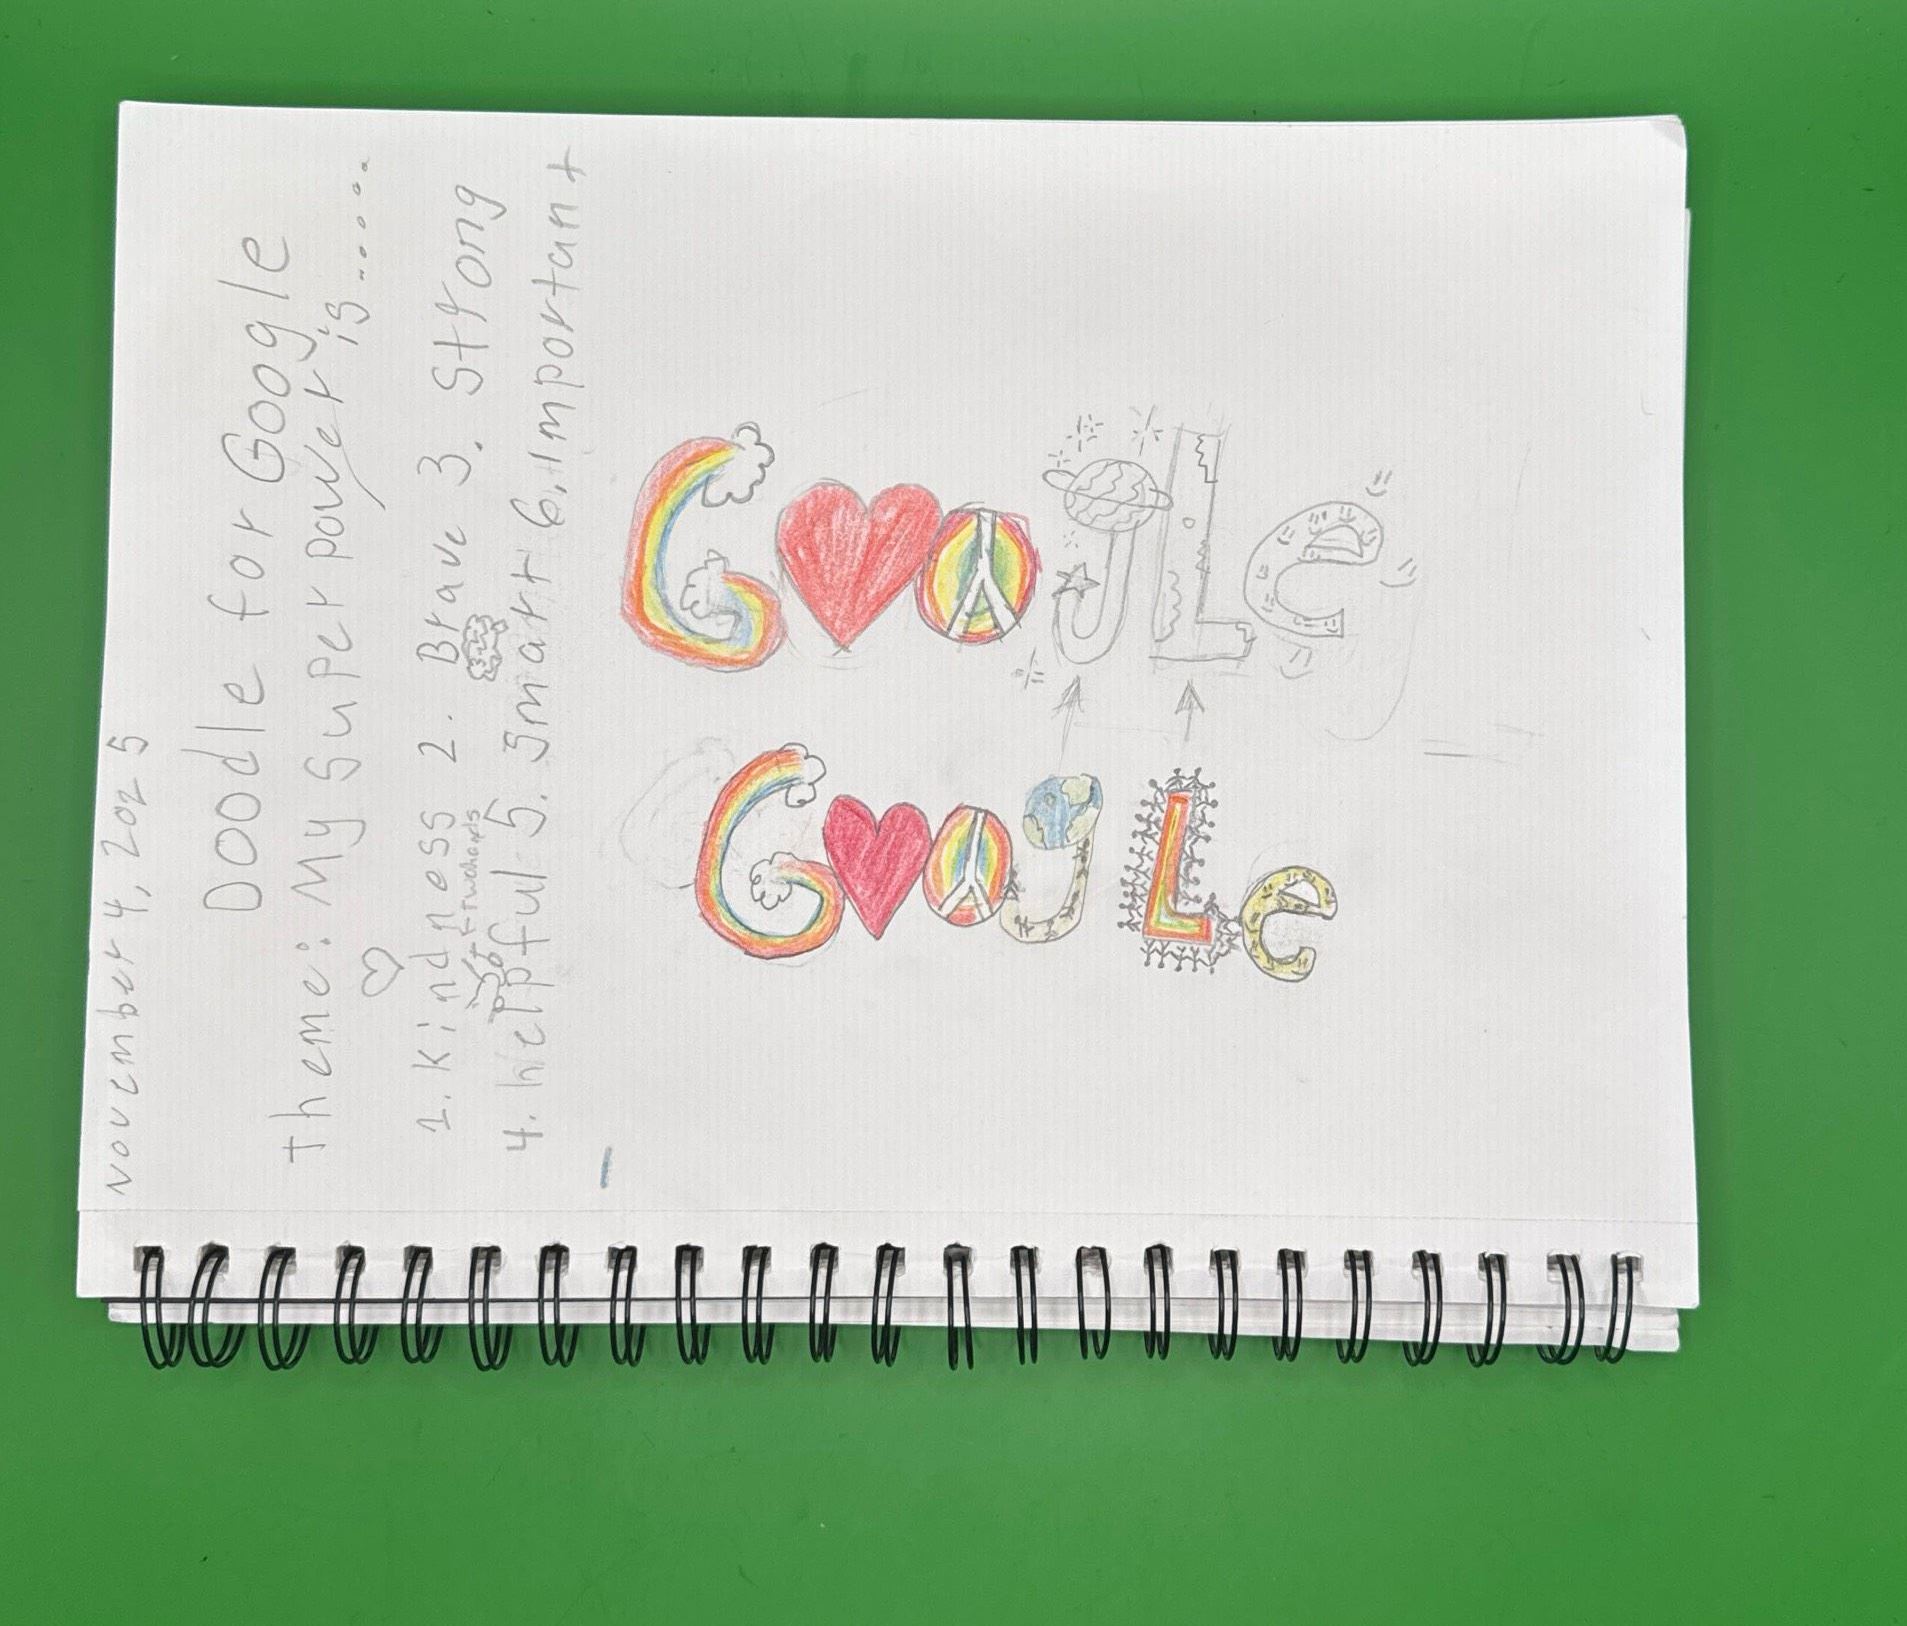 november 4, 2025
Doodle for Google
theme: My Superpower is......
1. Kindness 2. Brave 3. Strong
4. helpful 5. Smart 6. Important
GoogLe
GoogLe